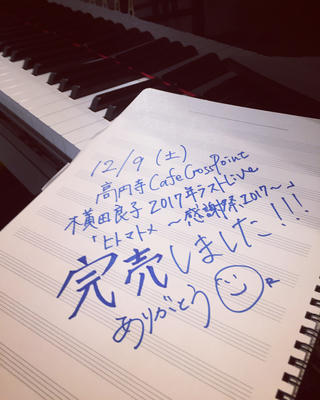 12/9(土)
高円寺 Cafe CrossPoint
横田良子 2017年ラストLive
「ヒトマト〆 〜感謝祭2017〜」
完売しました!!!
ありがとう
R